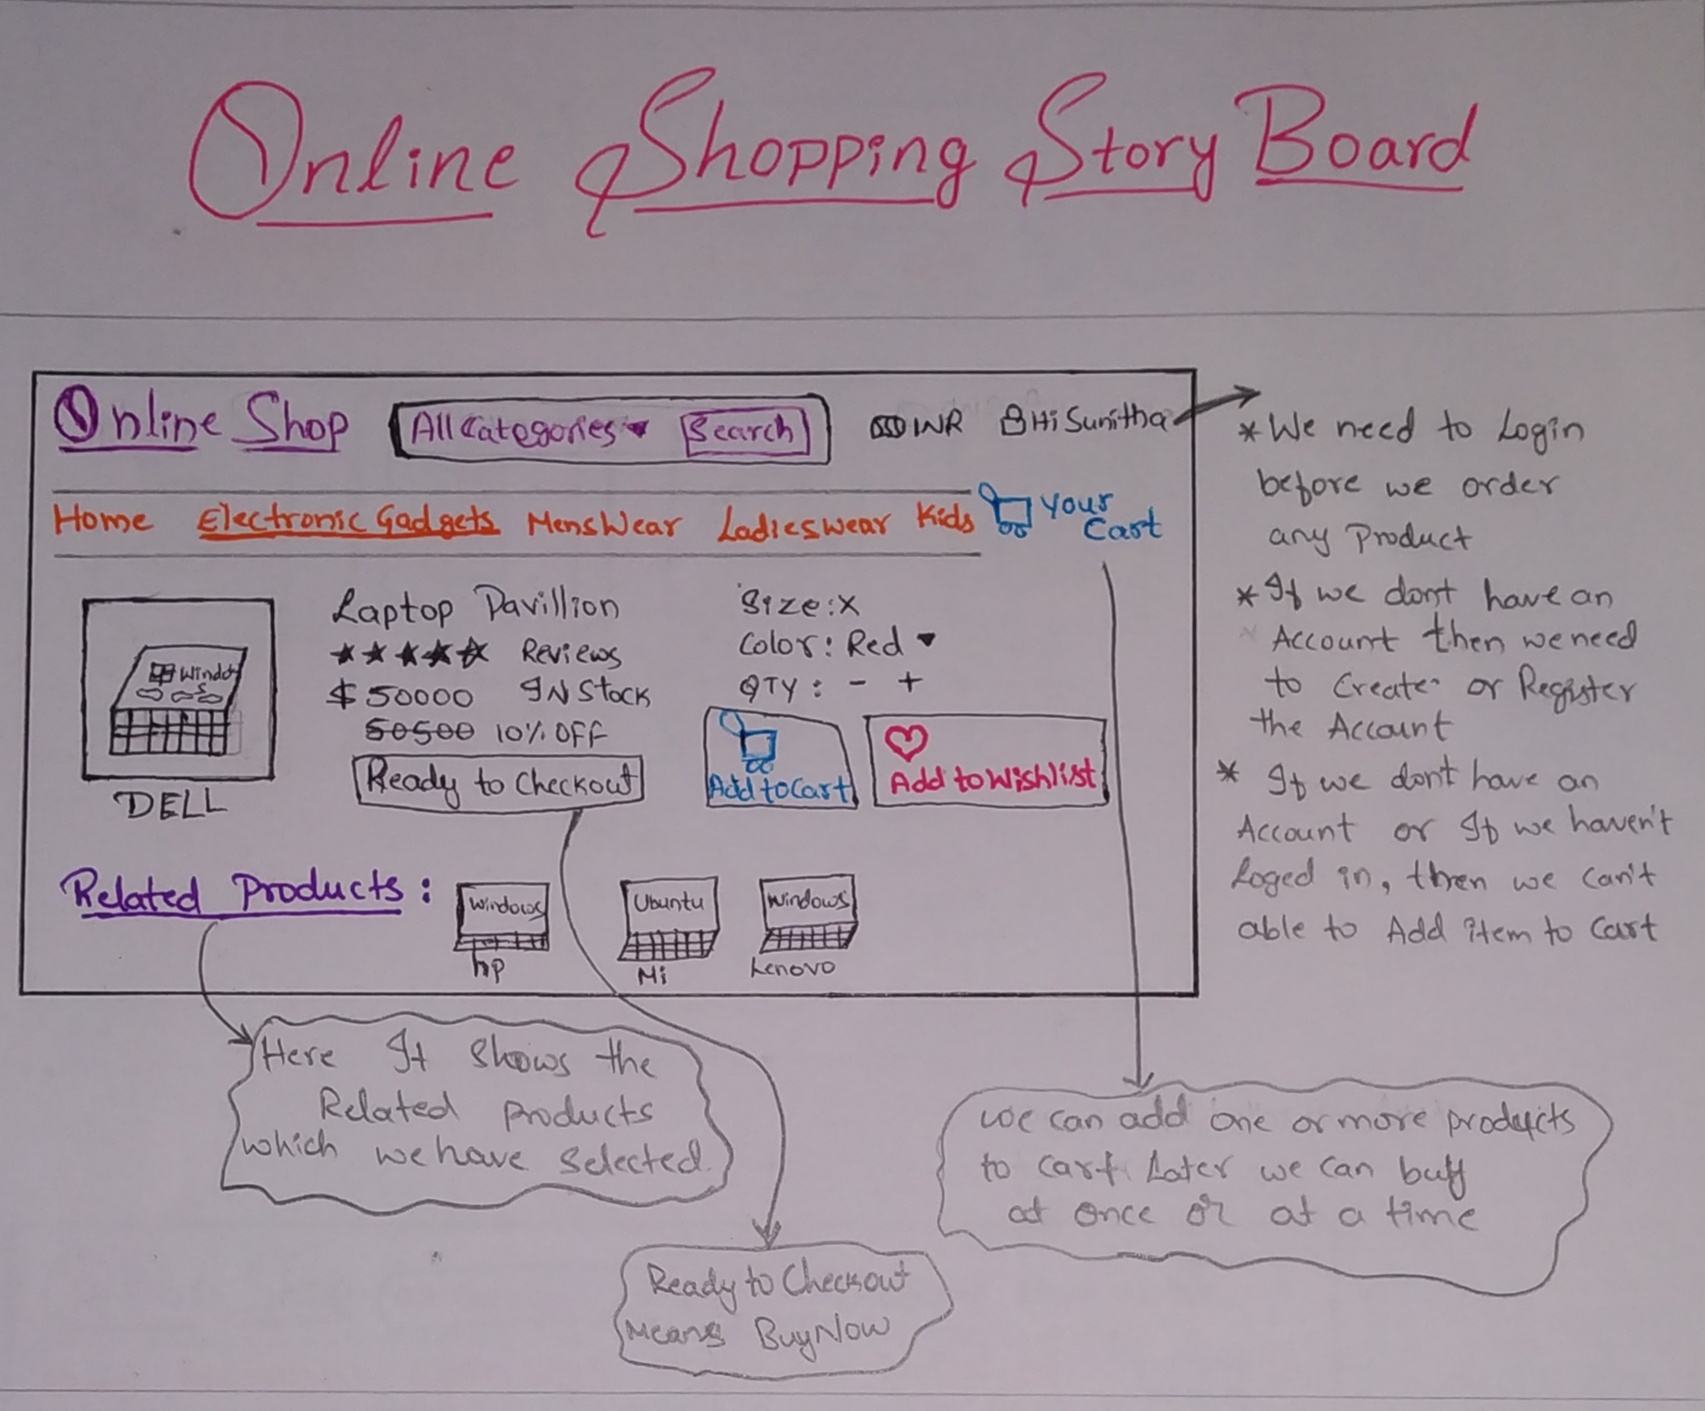 Online Shopping Story Board
Online Shop
All Categories Search
INR
Hi Sunitha
Home Electronic Gadgets MensWear Ladieswear Kids
Your
Cart
Windo
DELL
Laptop Pavillion
Reviews
$ 50000 IN Stock
50500 10% OFF
Ready to Checkout
Size: X
Color: Red
QTY: - +
Add to Cart
Add to Wishlist
Related Products:
Windows
hp
Ubuntu
Mi
Windows
Lenovo
* We need to Login
before we order
any Product
* If we dont have an
Account then we need
to Create or Register
the Account
* If we don't have an
Account or If we haven't
Loged in, then we can't
able to Add item to Cart
Here It Shows the
Related products
which we have selected.
Ready to Checkout
Means BuyNow
we can add one or more products
to cart. Later we can buy
at once or at a time